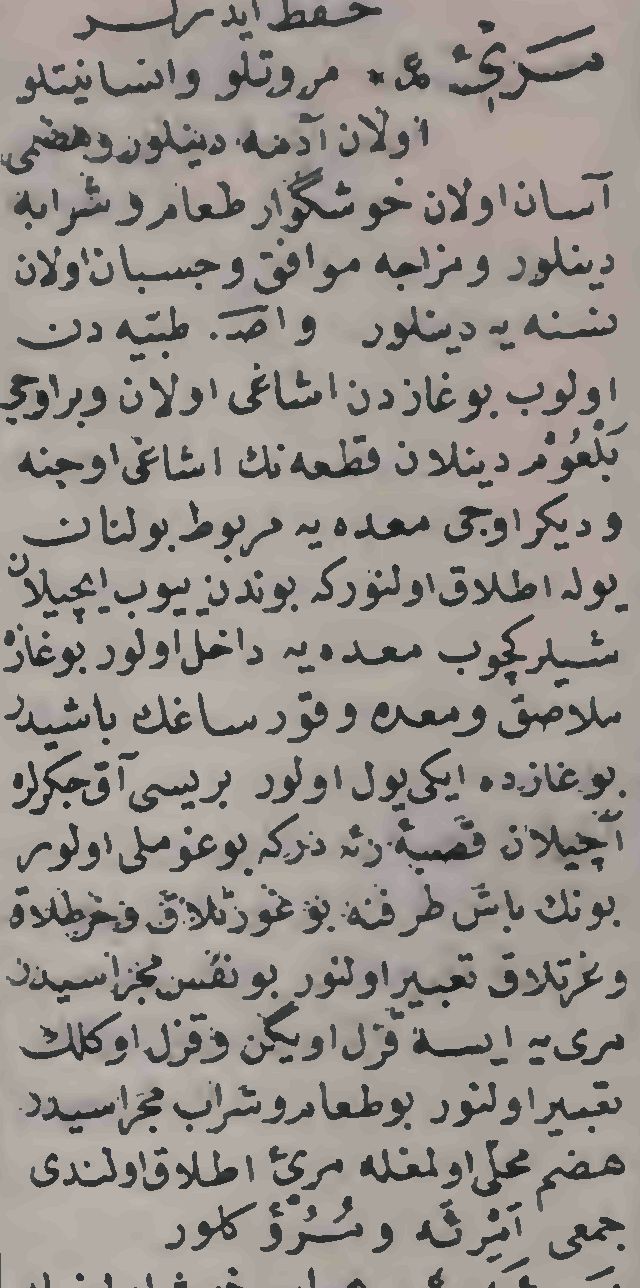 حفظ ایدرلر
مَرِیْءٌ مروتلو وانسانیتلو
اولان آدمه دینلور وهضمی
آسان اولان خوشگوار طعام و شرابه
دینلور ومزاجه موافق وچسبان اولان
نسنه یه دینلور و اصـ. طبیه دن
اولوب بوغازدن اشاغی اولان وبراوجی
بلعوم دینلان قطعه نك اشاغی اوجنه
و دیکر اوجی معده یه مربوط بولنان
یوله اطلاق اولنورکه بوندن ییوب ایچیلان
شیلر کچوب معده یه داخل اولور بوغازه
ملاصق ومعده وقور ساغك باشیدر
بوغازده ایکی یول اولور بریسی آق جکرلره
آچیلان قصبهٔ رئه درکه بوغوملی اولور
بونك باش طرفنه بوغورتلاق وخرطلاق
وغرتلاق تعبیر اولنور بو نفس مجراسیدر
مری یه ایسه قزل اویکن وقزل اوکلك
تعبیر اولنور بو طعام وشراب مجراسیدر
هضم محلی اولمغله مریء اطلاق اولندی
جمعی اَمْرِئَه ومُرُؤْ کلور